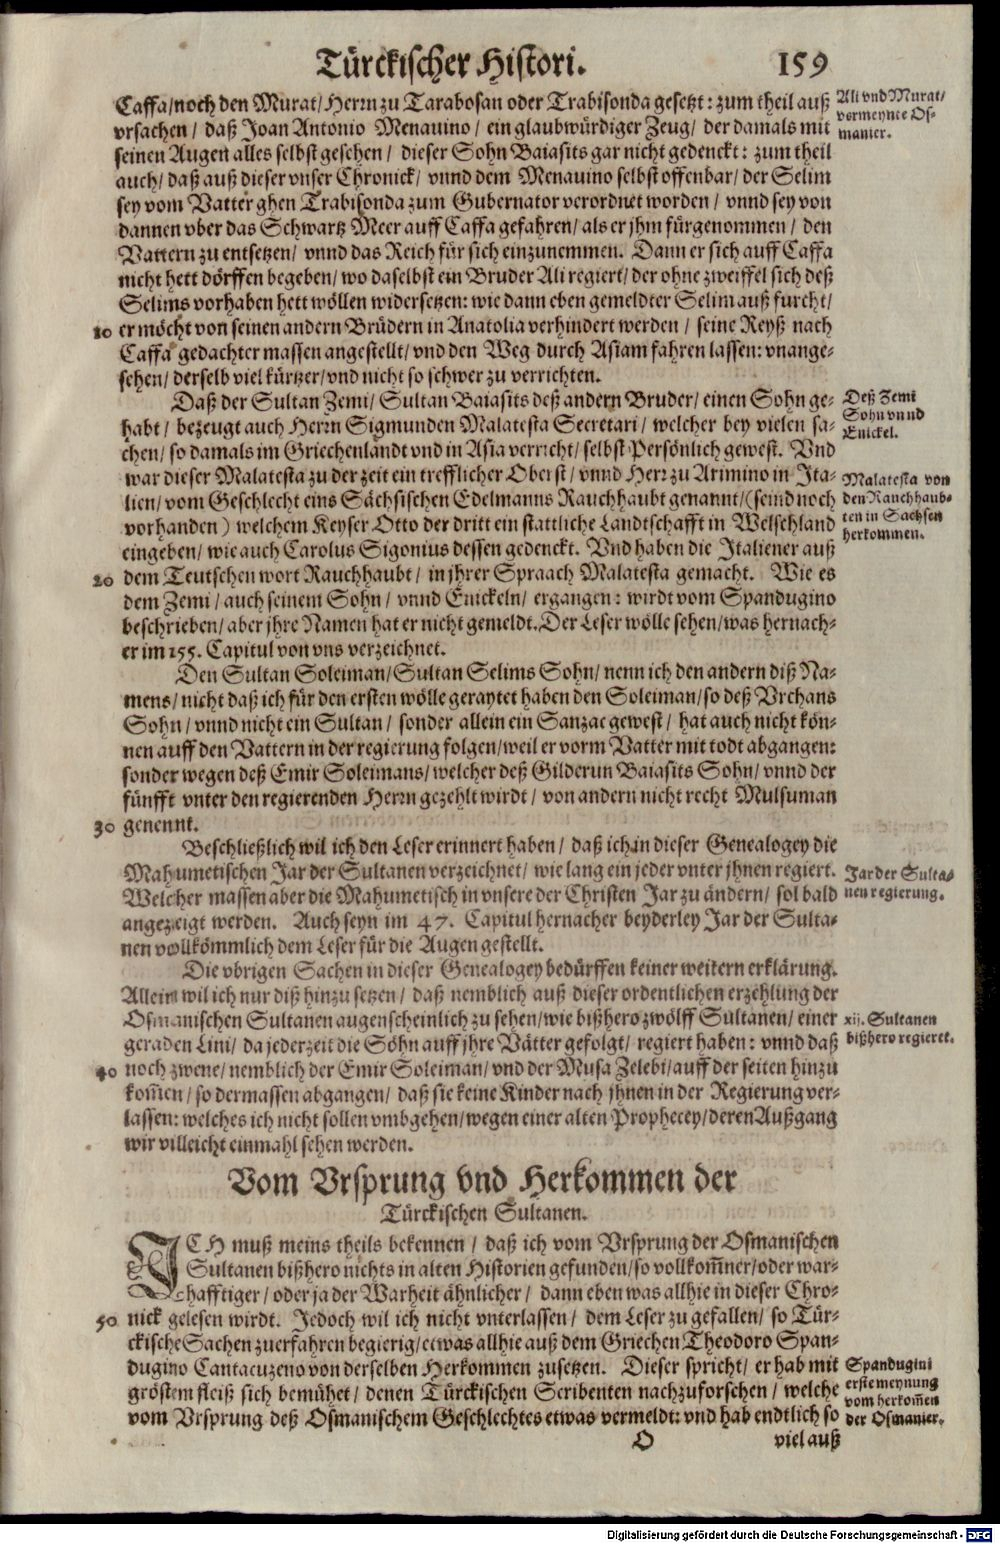 Türckischer Histori. 159
Caffa/noch den Murat/Herrn zu Tarabosan oder Trabisonda gesetzt: zum theil auß
vrsachen / daß Joan Antonio Menauino / ein glaubwürdiger Zeug / der damals mit
seinen Augen alles selbst gesehen / dieser Sohn Baiasits gar nicht gedenckt: zum theil
auch/ daß auß dieser vnser Chronick/ vnnd dem Menauino selbst offenbar/ der Selim
sey vom Vatter ghen Trabisonda zum Gubernator verordnet worden / vnnd sey von
dannen vber das Schwartz Meer auff Caffa gefahren/ als er jhm fürgenommen / den
Vattern zu entsetzen/ vnnd das Reich für sich einzunemmen. Dann er sich auff Caffa
nicht hett dörffen begeben/ wo daselbst ein Bruder Ali regiert/ der ohne zweiffel sich deß
Selims vorhaben hett wöllen widersetzen: wie dann eben gemeldter Selim auß furcht/
10 er möcht von seinen andern Brüdern in Anatolia verhindert werden / seine Reyß nach
Caffa gedachter massen angestellt/ vnd den Weg durch Asiam fahren lassen: vnange-
sehen/ derselb viel kürtzer/ vnd nicht so schwer zu verrichten.
Ali vnd Murat/
vermeynte Os-
manier.
Daß der Sultan Zemi/ Sultan Baiasits deß andern Bruder/ einen Sohn ge-
habt / bezeugt auch Herrn Sigmunden Malatesta Secretari/ welcher bey vielen sa-
chen/ so damals im Griechenlandt vnd in Asia verricht/ selbst Persönlich gewest. Vnd
war dieser Malatesta zu der zeit ein trefflicher Oberst/ vnnd Herr zu Arimino in Ita-
lien/ vom Geschlecht eins Sächsischen Edelmanns Rauchhaubt genannt/ (seind noch
vorhanden) welchem Keyser Otto der dritt ein stattliche Landtschafft in Welschland
eingeben/ wie auch Carolus Sigonius dessen gedenckt. Vnd haben die Italiener auß
20 dem Teutschen wort Rauchhaubt/ in jhrer Spraach Malatesta gemacht. Wie es
dem Zemi/ auch seinem Sohn / vnnd Enickeln/ ergangen: wirdt vom Spandugino
beschrieben/ aber jhre Namen hat er nicht gemeldt. Der Leser wölle sehen/ was hernach-
er im 155. Capitul von vns verzeichnet.
Deß Zemi
Sohn vnnd
Enickel.
Malatesta von
den Rauchhaub-
ten in Sachsen
herkommen.
Den Sultan Soleiman/ Sultan Selims Sohn/ nenn ich den andern diß Na-
mens/ nicht daß ich für den ersten wölle geraytet haben den Soleiman/ so deß Vrchans
Sohn/ vnnd nicht ein Sultan/ sonder allein ein Sanzac gewest/ hat auch nicht kön-
nen auff den Vattern in der regierung folgen/ weil er vorm Vatter mit todt abgangen:
sonder wegen deß Emir Soleimans/ welcher deß Gilderun Baiasits Sohn/ vnnd der
fünfft vnter den regierenden Herrn gezehlt wirdt / von andern nicht recht Mulsuman
30 genennt.
Beschließlich wil ich den Leser erinnert haben/ daß ich in dieser Genealogey die
Mahumetischen Jar der Sultanen verzeichnet/ wie lang ein jeder vnter jhnen regiert.
Welcher massen aber die Mahumetisch in vnsere der Christen Jar zu ändern/ sol bald
angezeigt werden. Auch seyn im 47. Capitul hernacher beyderley Jar der Sulta-
nen vollkömmlich dem Leser für die Augen gestellt.
Jar der Sulta-
nen regierung.
Die vbrigen Sachen in dieser Genealogey bedürffen keiner weitern erklärung.
Allein wil ich nur diß hinzu setzen/ daß nemblich auß dieser ordentlichen erzehlung der
Osmanischen Sultanen augenscheinlich zu sehen/ wie bißhero zwölff Sultanen/ einer
geraden Lini/ da jederzeit die Söhn auff jhre Vätter gefolgt/ regiert haben: vnnd daß
40 noch zwene/ nemblich der Emir Soleiman/ vnd der Musa Zelebi/ auff der seiten hinzu
kom̄en/ so dermassen abgangen/ daß sie keine Kinder nach jhnen in der Regierung ver-
lassen: welches ich nicht sollen vmbgehen/ wegen einer alten Prophecey/ deren Außgang
wir villeicht einmahl sehen werden.
xij. Sultanen
bißhero regieret.
Vom Vrsprung vnd Herkommen der
Türckischen Sultanen.
ICH muß meins theils bekennen / daß ich vom Vrsprung der Osmanischen
Sultanen bißhero nichts in alten Historien gefunden/ so vollkom̄ner/ oder war-
hafftiger/ oder ja der Warheit ähnlicher/ dann eben was allhie in dieser Chro-
50 nick gelesen wirdt. Jedoch wil ich nicht vnterlassen/ dem Leser zu gefallen/ so Tür-
ckische Sachen zuerfahren begierig/ etwas allhie auß dem Griechen Theodoro Span-
dugino Cantacuzeno von derselben Herkommen zusetzen. Dieser spricht/ er hab mit
gröstem fleiß sich bemühet/ denen Türckischen Scribenten nachzuforschen/ welche
vom Vrsprung deß Osmanischem Geschlechtes etwas vermeldt: vnd hab endtlich so
Spandugini
erste meynung
vom herkom̄en
der Osmanier.
O viel auß
Digitalisierung gefördert durch die Deutsche Forschungsgemeinschaft - DFG